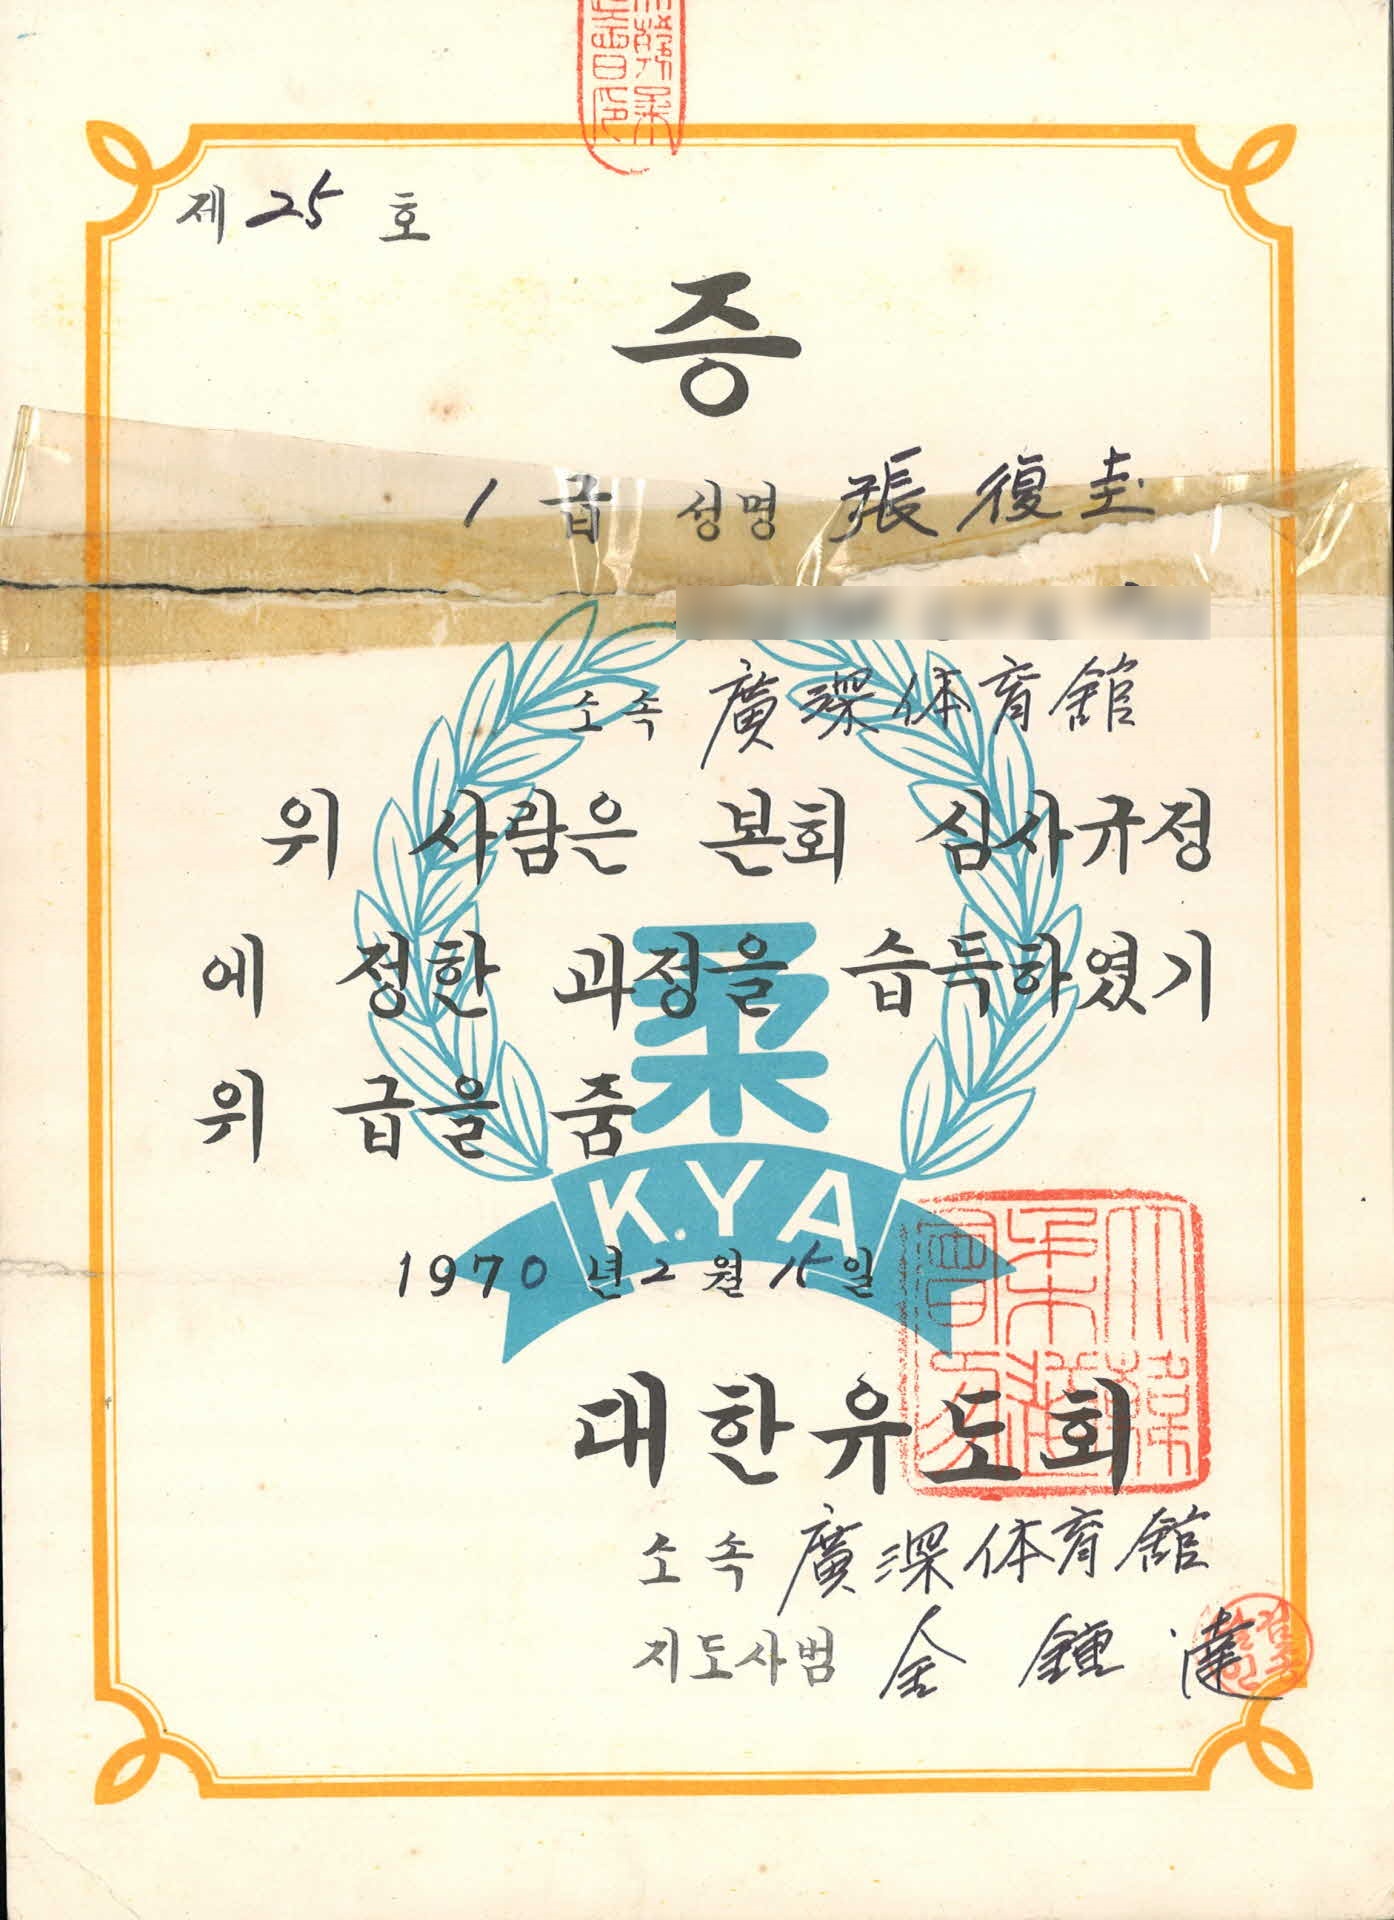 제 25 호
증
1 급 성명 張復圭
소속 廣深体育館
위 사람은 본회 심사규정
에 정한 과정을 습득하였기
위 급을 줌
柔
K.Y.A
1970 년 2 월 15 일
대한유도회
소속 廣深体育館
지도사범 金鍾達